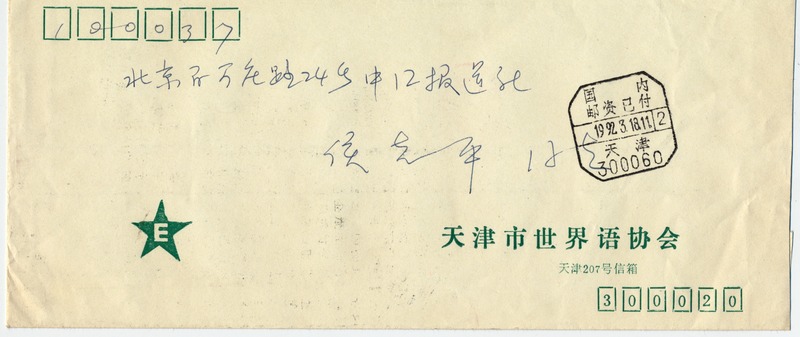 100037
北京百万庄路24号中国报道社
侯志平 收
国内
邮资已付
1992.3.18.11 2
天津
300060
E
天津市世界语协会
天津207号信箱
300020